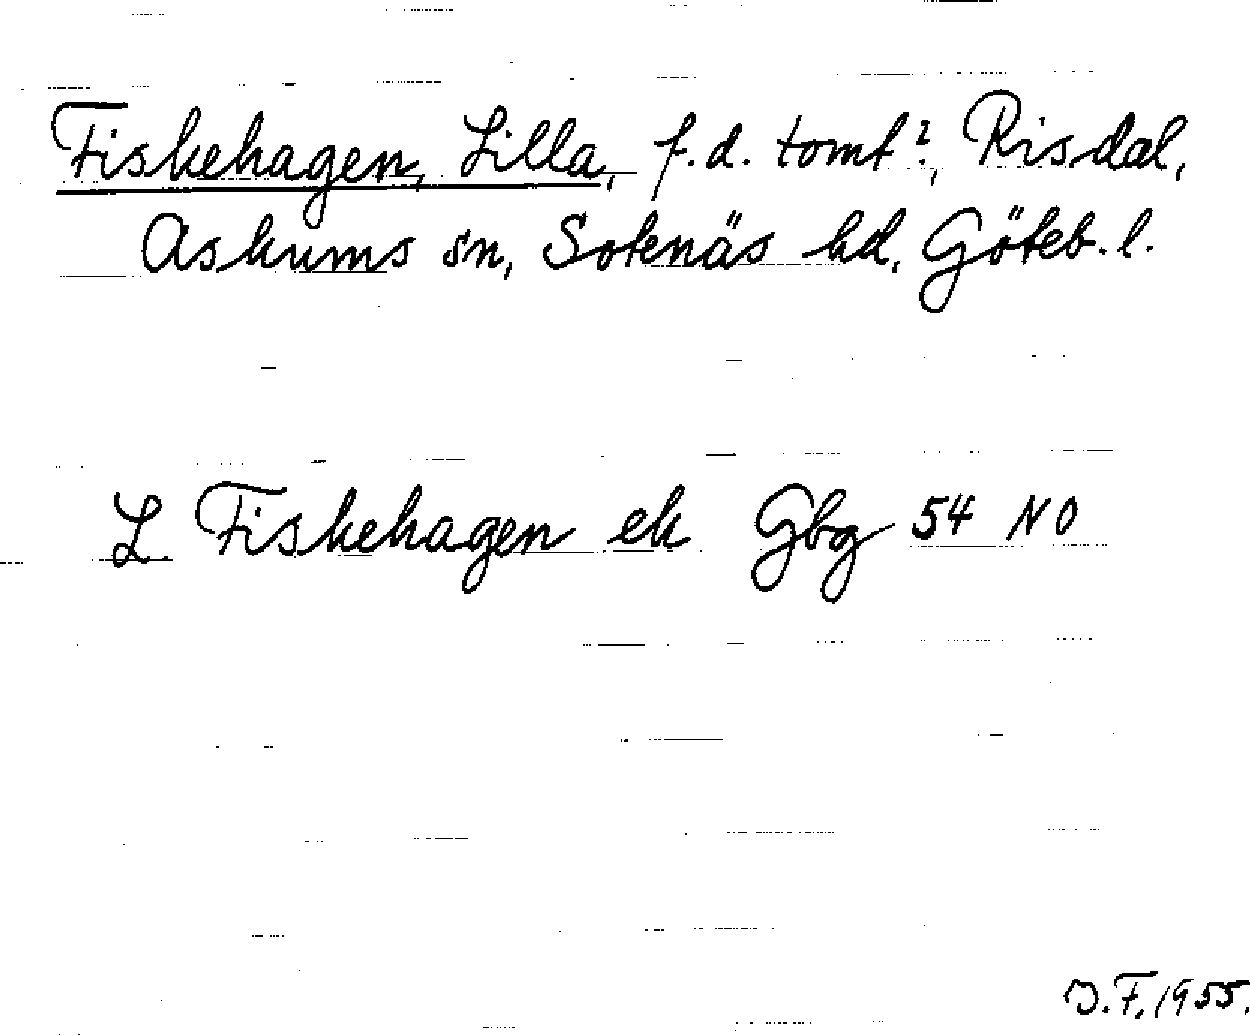 Fiskehagen, Lilla, f.d. tomt?, Risdal,
Askums sn, Sotenäs hd, Göteb. l.
L. Fiskehagen ek Gbg 54 NO
D.F. 1955.